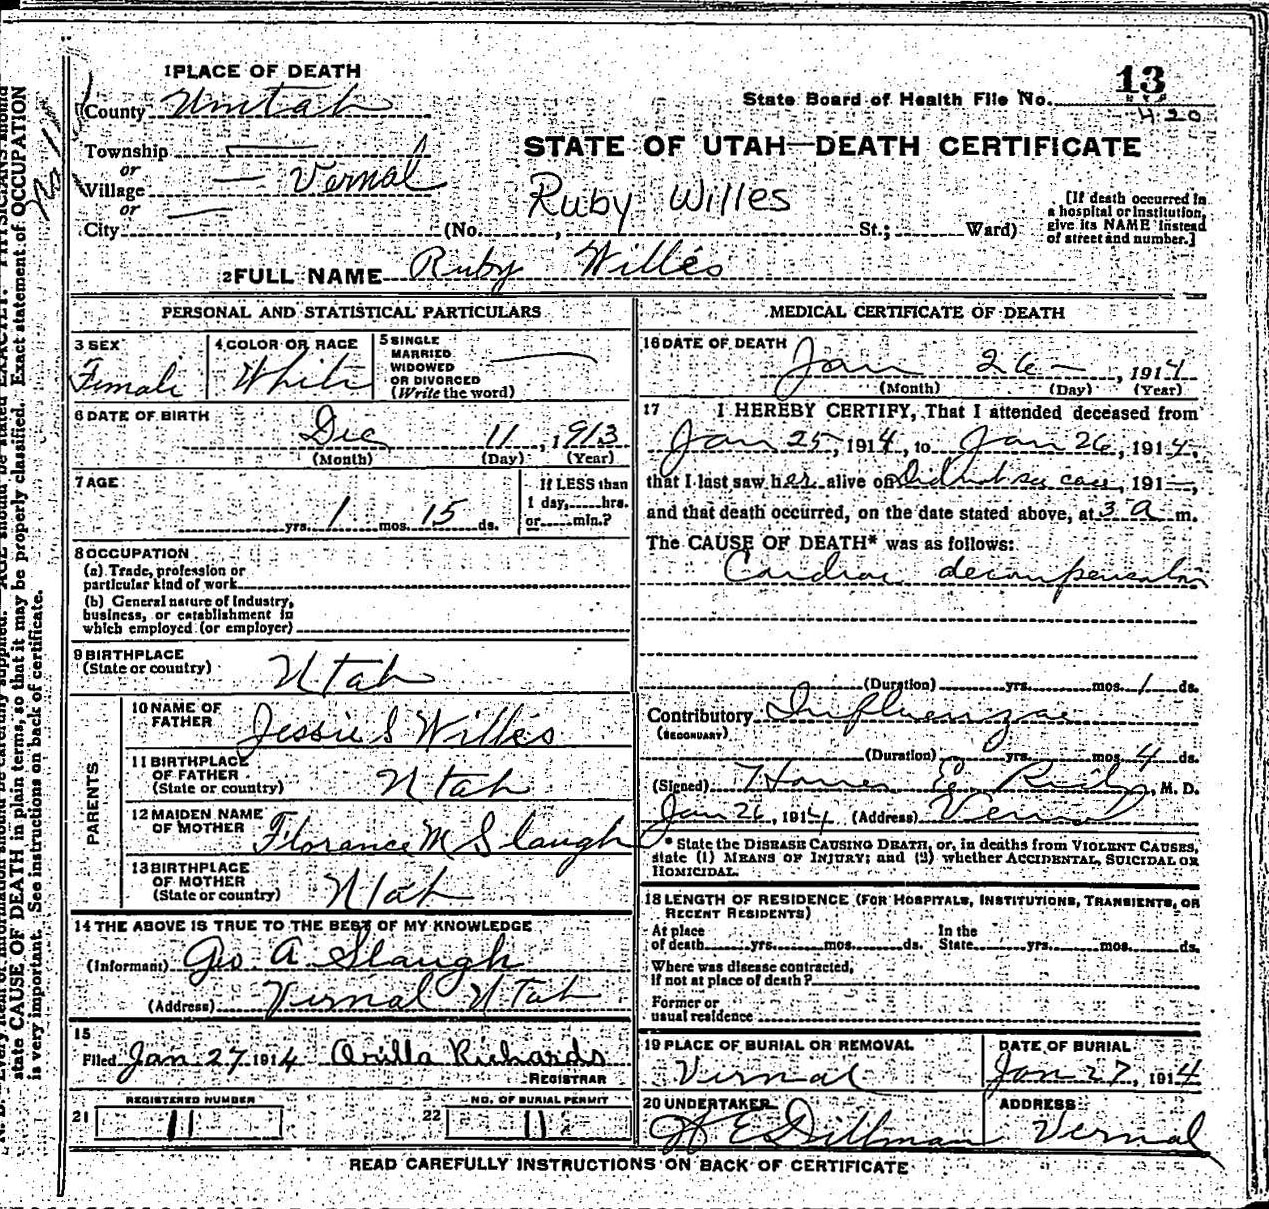 1 PLACE OF DEATH
County Uintah
Township
or
Village Vernal
or
City (No. , St.; Ward)
13
State Board of Health File No.
420
STATE OF UTAH—DEATH CERTIFICATE
Ruby Willes
[If death occurred in
a hospital or institution,
give its NAME instead
of street and number.]
2 FULL NAME Ruby Willes
PERSONAL AND STATISTICAL PARTICULARS
3 SEX
Female
4 COLOR OR RACE
White
5 SINGLE
MARRIED
WIDOWED
OR DIVORCED
(Write the word)
6 DATE OF BIRTH
Dec 11, 1913
(Month) (Day) (Year)
7 AGE
yrs. 1 mos. 15 ds.
If LESS than
1 day, hrs.
or min.?
8 OCCUPATION
(a) Trade, profession or
particular kind of work
(b) General nature of Industry,
business, or establishment in
which employed (or employer)
9 BIRTHPLACE
(State or country) Utah
PARENTS
10 NAME OF
FATHER Jessie S Willes
11 BIRTHPLACE
OF FATHER
(State or country) Utah
12 MAIDEN NAME
OF MOTHER Florance M Slaugh
13 BIRTHPLACE
OF MOTHER
(State or country) Utah
14 THE ABOVE IS TRUE TO THE BEST OF MY KNOWLEDGE
(Informant) Geo. A Slaugh
(Address) Vernal Utah
15
Filed Jan 27 1914 Orilla Richards
REGISTRAR
REGISTERED NUMBER
21 11
NO. OF BURIAL PERMIT
22 11
MEDICAL CERTIFICATE OF DEATH
16 DATE OF DEATH
Jan 26, 1914
(Month) (Day) (Year)
17 I HEREBY CERTIFY, That I attended deceased from
Jan 25, 1914, to Jan 26, 1914,
that I last saw her alive on Did not see case, 191—,
and that death occurred, on the date stated above, at 3 a m.
The CAUSE OF DEATH* was as follows:
Cardiac decompensation
(Duration) yrs. mos. 1 ds.
Contributory Influenzae
(SECONDARY)
(Duration) yrs. mos. 4 ds.
(Signed) Homer E, M. D.
Jan 26, 1914 (Address) Vernal
* State the DISEASE CAUSING DEATH, or, in deaths from VIOLENT CAUSES,
state (1) MEANS OF INJURY; and (2) whether ACCIDENTAL, SUICIDAL OR
HOMICIDAL.
18 LENGTH OF RESIDENCE (FOR HOSPITALS, INSTITUTIONS, TRANSIENTS, OR
RECENT RESIDENTS)
At place
of death yrs. mos. ds.
In the
State yrs. mos. ds.
Where was disease contracted,
if not at place of death?
Former or
usual residence
19 PLACE OF BURIAL OR REMOVAL
Vernal
DATE OF BURIAL
Jan 27, 1914
20 UNDERTAKER
W E Dillman
ADDRESS
Vernal
READ CAREFULLY INSTRUCTIONS ON BACK OF CERTIFICATE
state CAUSE OF DEATH in plain terms, so that it may be properly classified. Exact statement of OCCUPATION
is very important. See instructions on back of certificate.